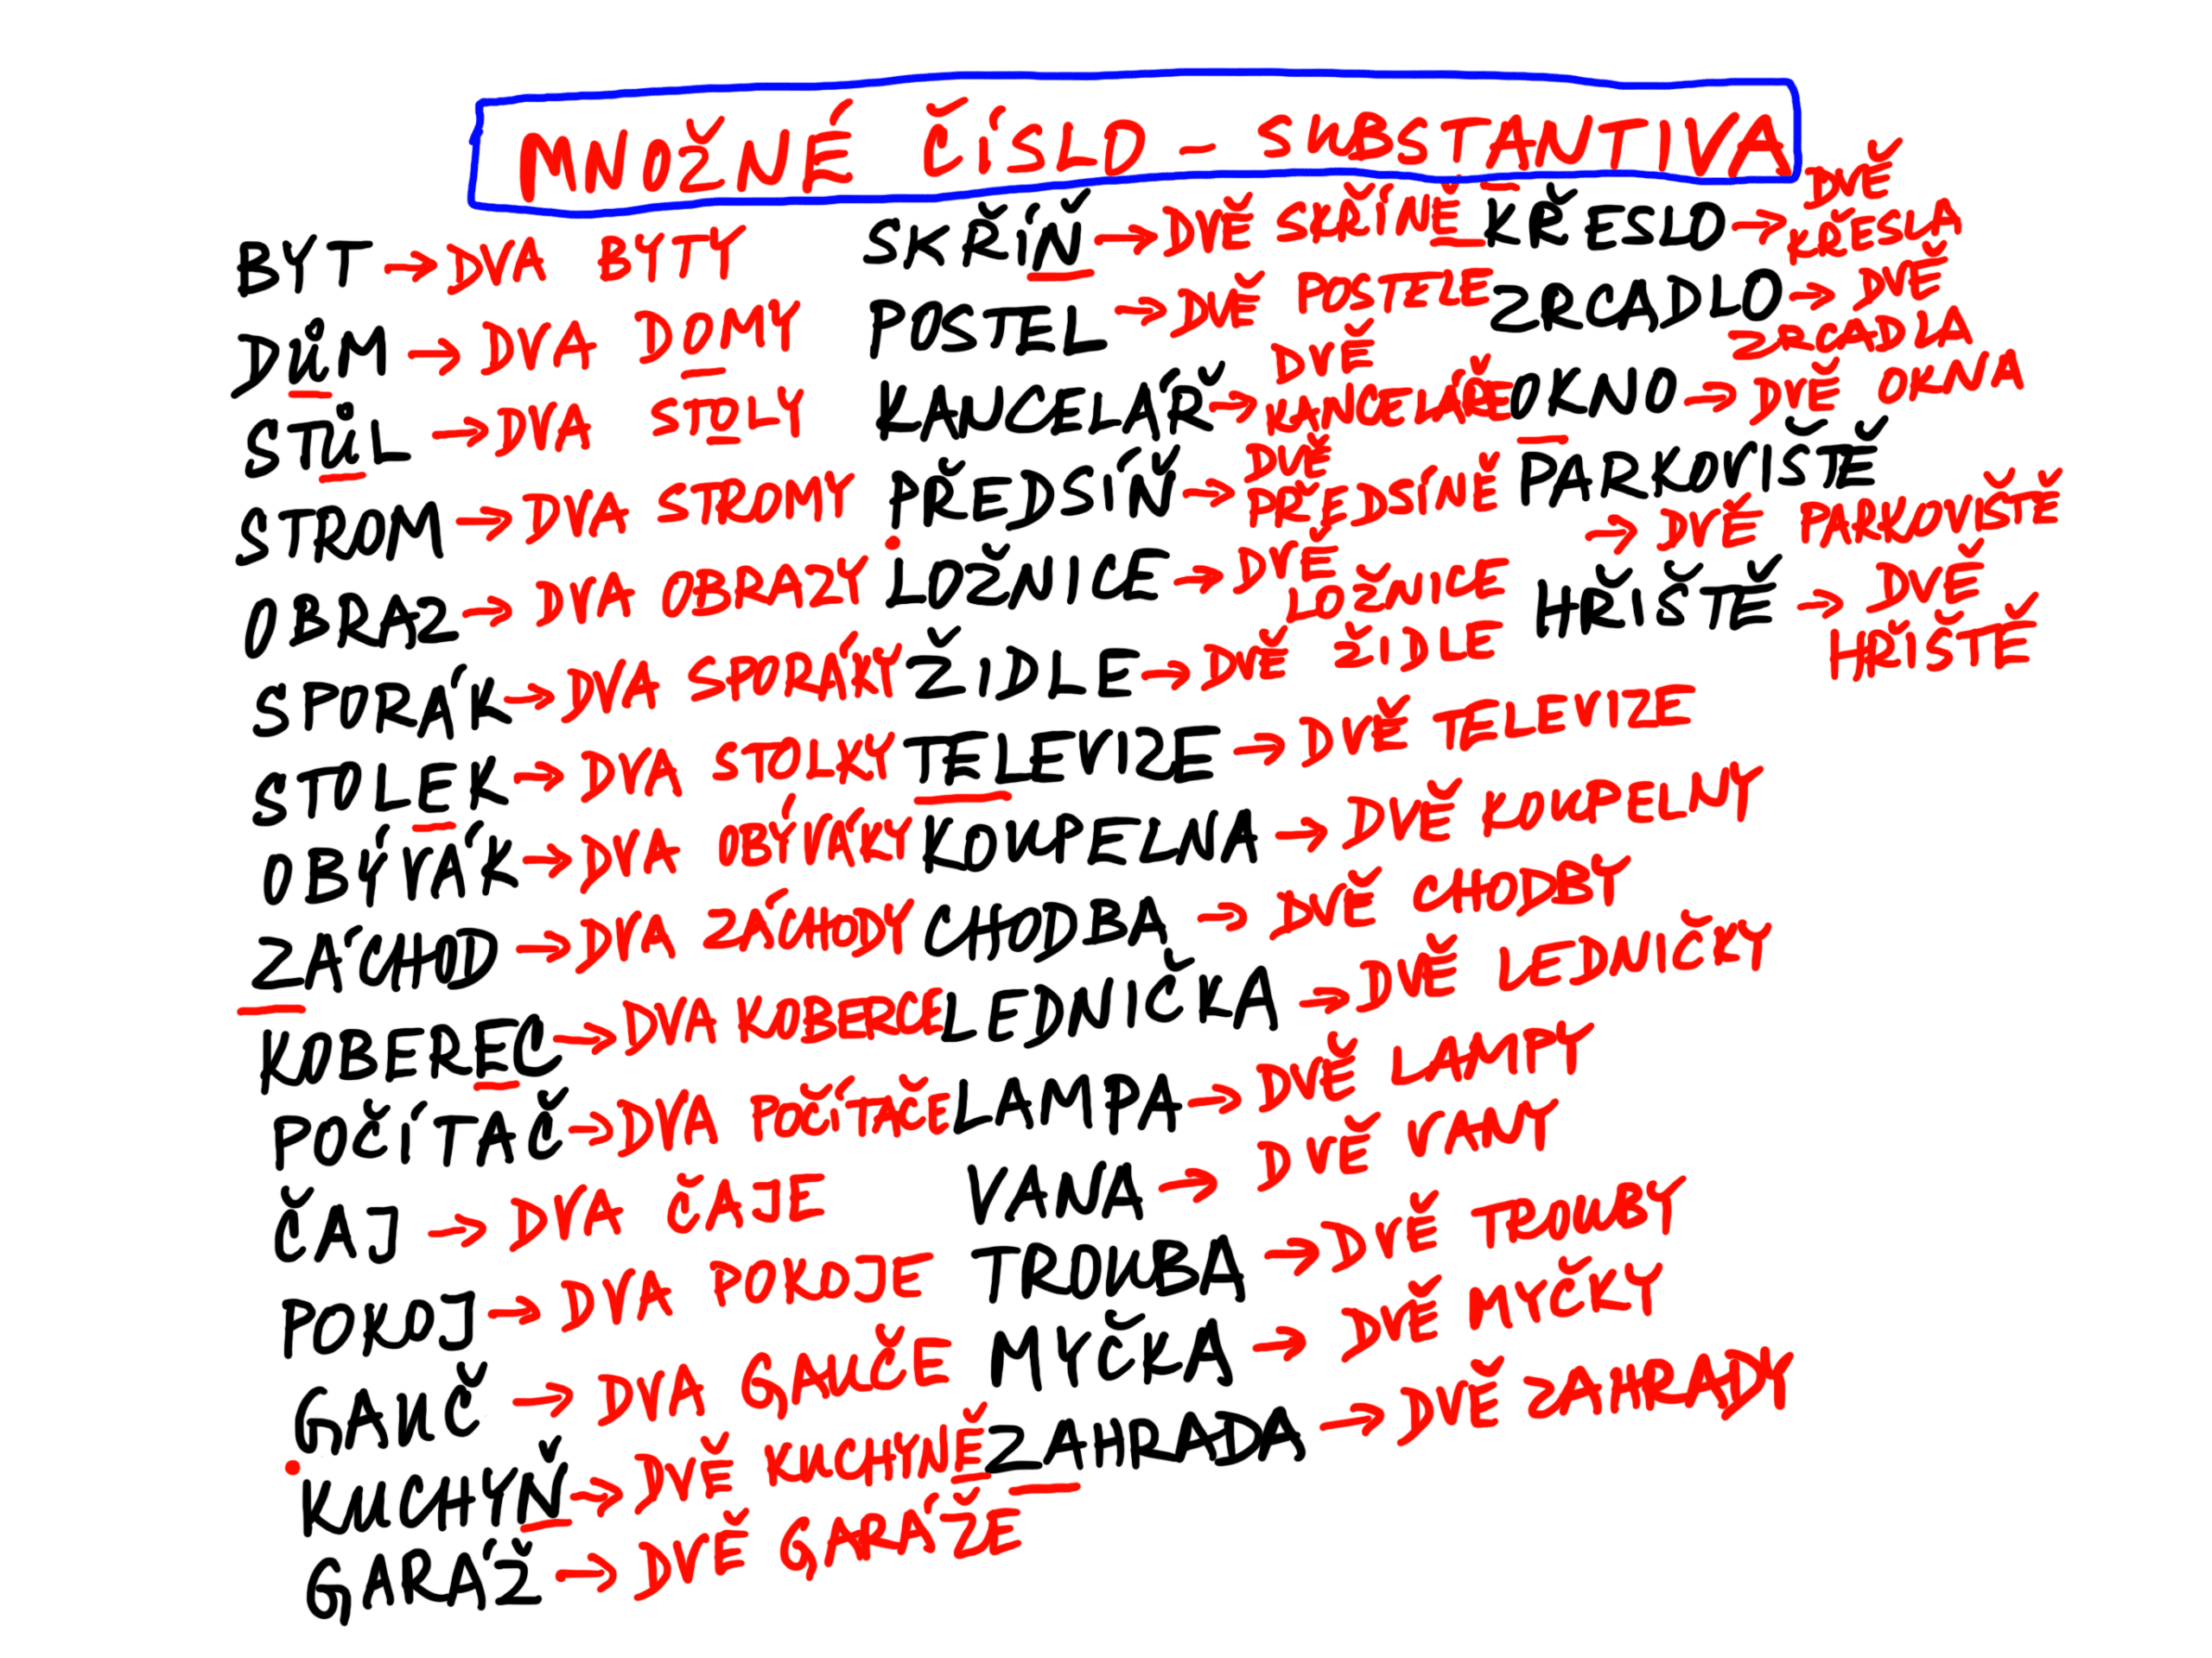 MNOŽNÉ ČÍSLO - SUBSTANTIVA
BYT → DVA BYTY
DŮM → DVA DOMY
STŮL → DVA STOLY
STROM → DVA STROMY
OBRAZ → DVA OBRAZY
SPORÁK → DVA SPORÁKY
STOLEK → DVA STOLKY
OBÝVÁK → DVA OBÝVÁKY
ZÁCHOD → DVA ZÁCHODY
KOBEREC → DVA KOBERCE
POČÍTAČ → DVA POČÍTAČE
ČAJ → DVA ČAJE
POKOJ → DVA POKOJE
GAUČ → DVA GAUČE
KUCHYŇ → DVĚ KUCHYNĚ
GARÁŽ → DVĚ GARÁŽE
SKŘÍŇ → DVĚ SKŘÍNĚ
POSTEL → DVĚ POSTELE
KANCELÁŘ → DVĚ
KANCELÁŘE
PŘEDSÍŇ → DVĚ
PŘEDSÍNĚ
LOŽNICE → DVĚ
LOŽNICE
ŽIDLE → DVĚ ŽIDLE
TELEVIZE → DVĚ TELEVIZE
KOUPELNA → DVĚ KOUPELNY
CHODBA → DVĚ CHODBY
LEDNIČKA → DVĚ LEDNIČKY
LAMPA → DVĚ LAMPY
VANA → DVĚ VANY
TROUBA → DVĚ TROUBY
MYČKA → DVĚ MYČKY
ZAHRADA → DVĚ ZAHRADY
KŘESLO → DVĚ
KŘESLA
ZRCADLO → DVĚ
ZRCADLA
OKNO → DVĚ OKNA
PARKOVIŠTĚ
→ DVĚ PARKOVIŠTĚ
HŘIŠTĚ → DVĚ
HŘIŠTĚ